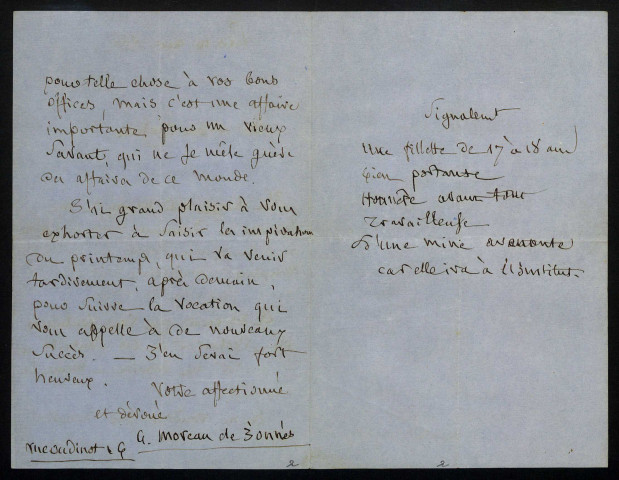 pour telle chose à vos bons
offices, mais c'est une affaire
importante pour un vieux
Savant, qui ne se mêle guère
des affaires de ce monde.
J'ai grand plaisir à vous
exhorter à saisir les inspirations
du printemps, qui va venir
tardivement, après demain,
pour suivre la vocation qui
vous appelle à de nouveaux
succès. — J'en serai fort
heureux.
Votre affectionné
et dévoué
A. Moreau de Jonnès
rue Oudinot
Signalemt
Une fillette de 17 à 18 ans
bien portante
Honnête avant tout
Travailleuse
D'une mine avenante
car elle ira à l'Institut.
2
2